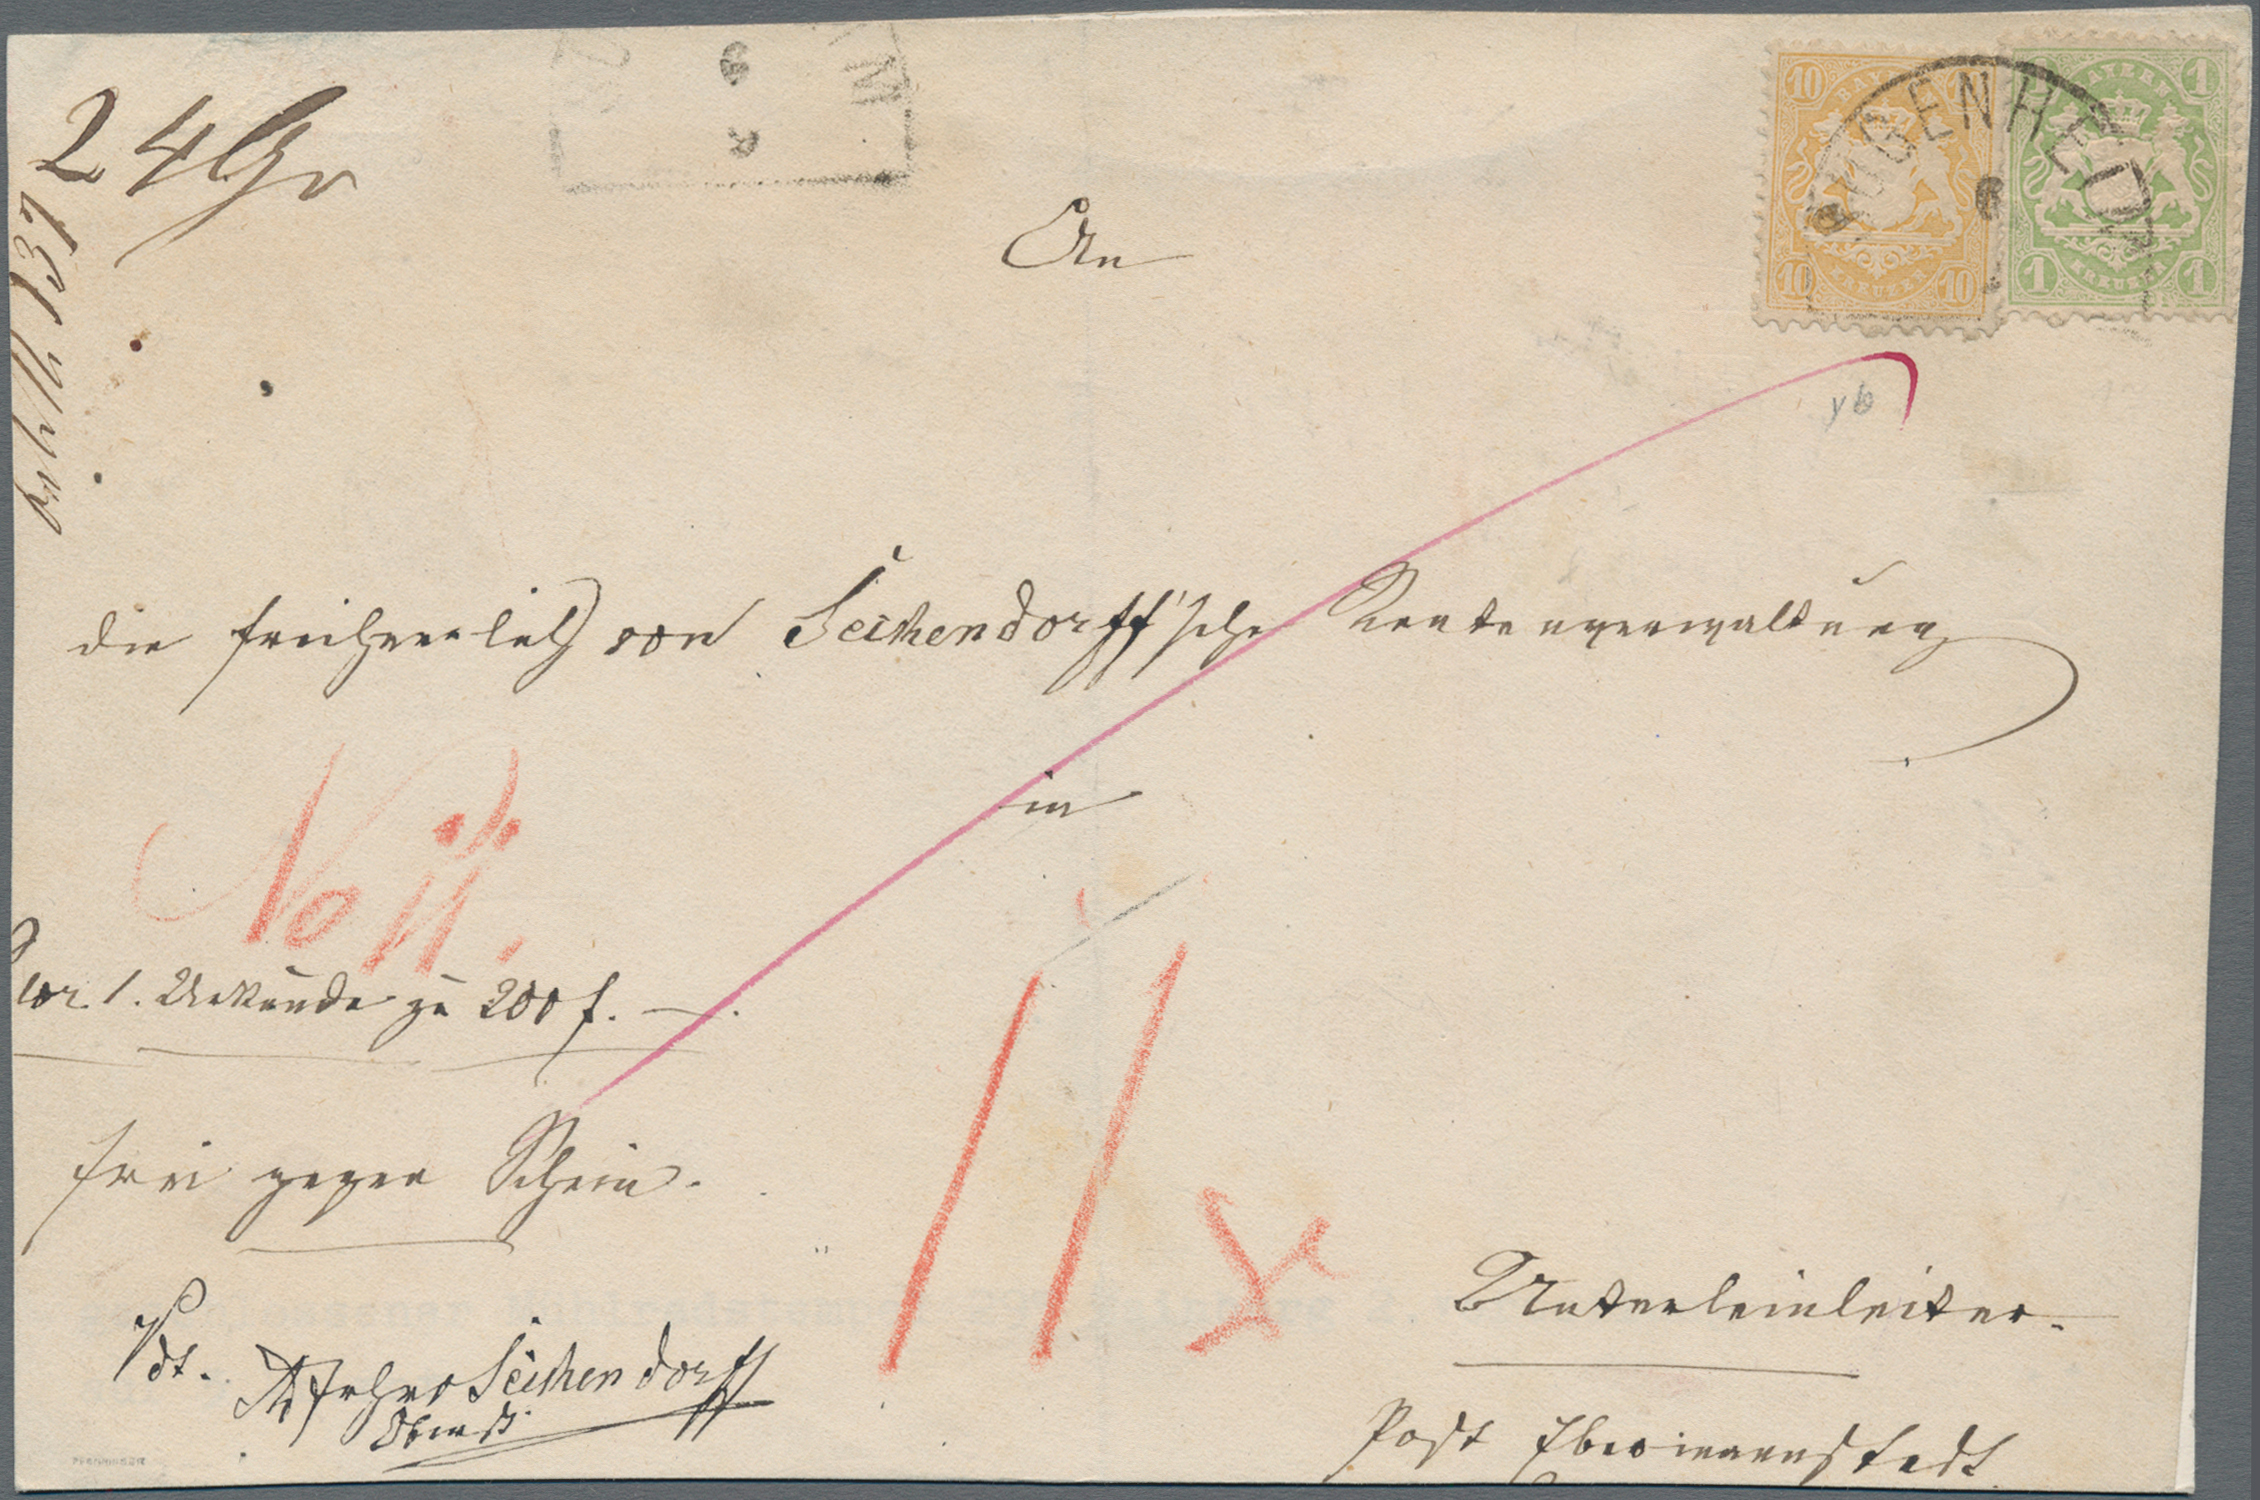 24 Gr
137
An
die freiherrlich von Seckendorff'sche Rentenverwaltung
in
No 11.
1. Urkunde zu 200 f.
frei gegen Schein.
11 x
Unterleinleiter.
Vdt.
Frhr v Seckendorff
Oberst
Post Ebermannstadt
10 BAYERN 10
10 KREUZER 10
1 BAYERN 1
1 KREUZER 1
GUGENHEIM
6
yb
PFENNINGER